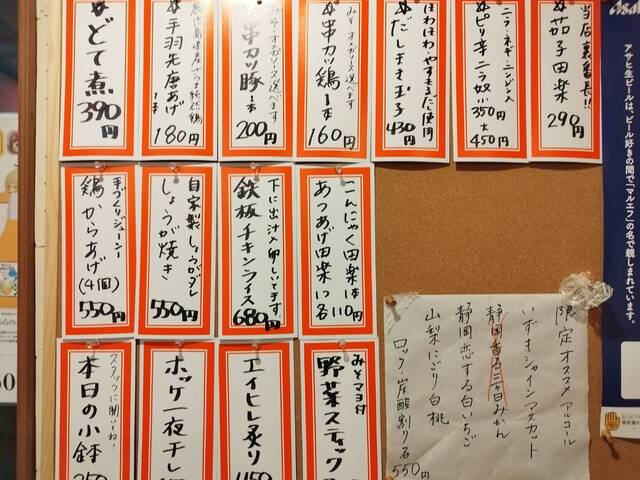 当店裏番長!!
茄子田楽
290円
ニラ・ネギ・ニンジン入
ピリ辛ニラ奴
小350円
大450円
ほわほわ・やすまるだし使用
だしまき玉子
430円
みそ・オ・ソース選べます
串カツ鶏1本
160円
みそ・オ・ソース選べます
串カツ豚1本
200円
手羽先唐あげ
1本
180円
どて煮
390円
こんにゃく田楽1本
あつあげ田楽1つ
各110円
下に出汁入卵しいてます。
鉄板チキンライス
680円
自家製しょうがダレ
しょうが焼き
550円
手づくりジューシー
鶏からあげ
(4個)
550円
みそマヨ付
野菜スティック
エイヒレ炙り
450
ホッケ一夜干し
スタッフに聞いてね!
本日の小鉢
350
限定オススメアルコール
いずもシャインマスカット
静岡香る三ヶ日みかん
静岡恋する白いちご
山梨にごり白桃
ロック・炭酸割り各550円
Asahi
アサヒ生ビールは、ビール好きの間で「マルエフ」の名で親しまれています。